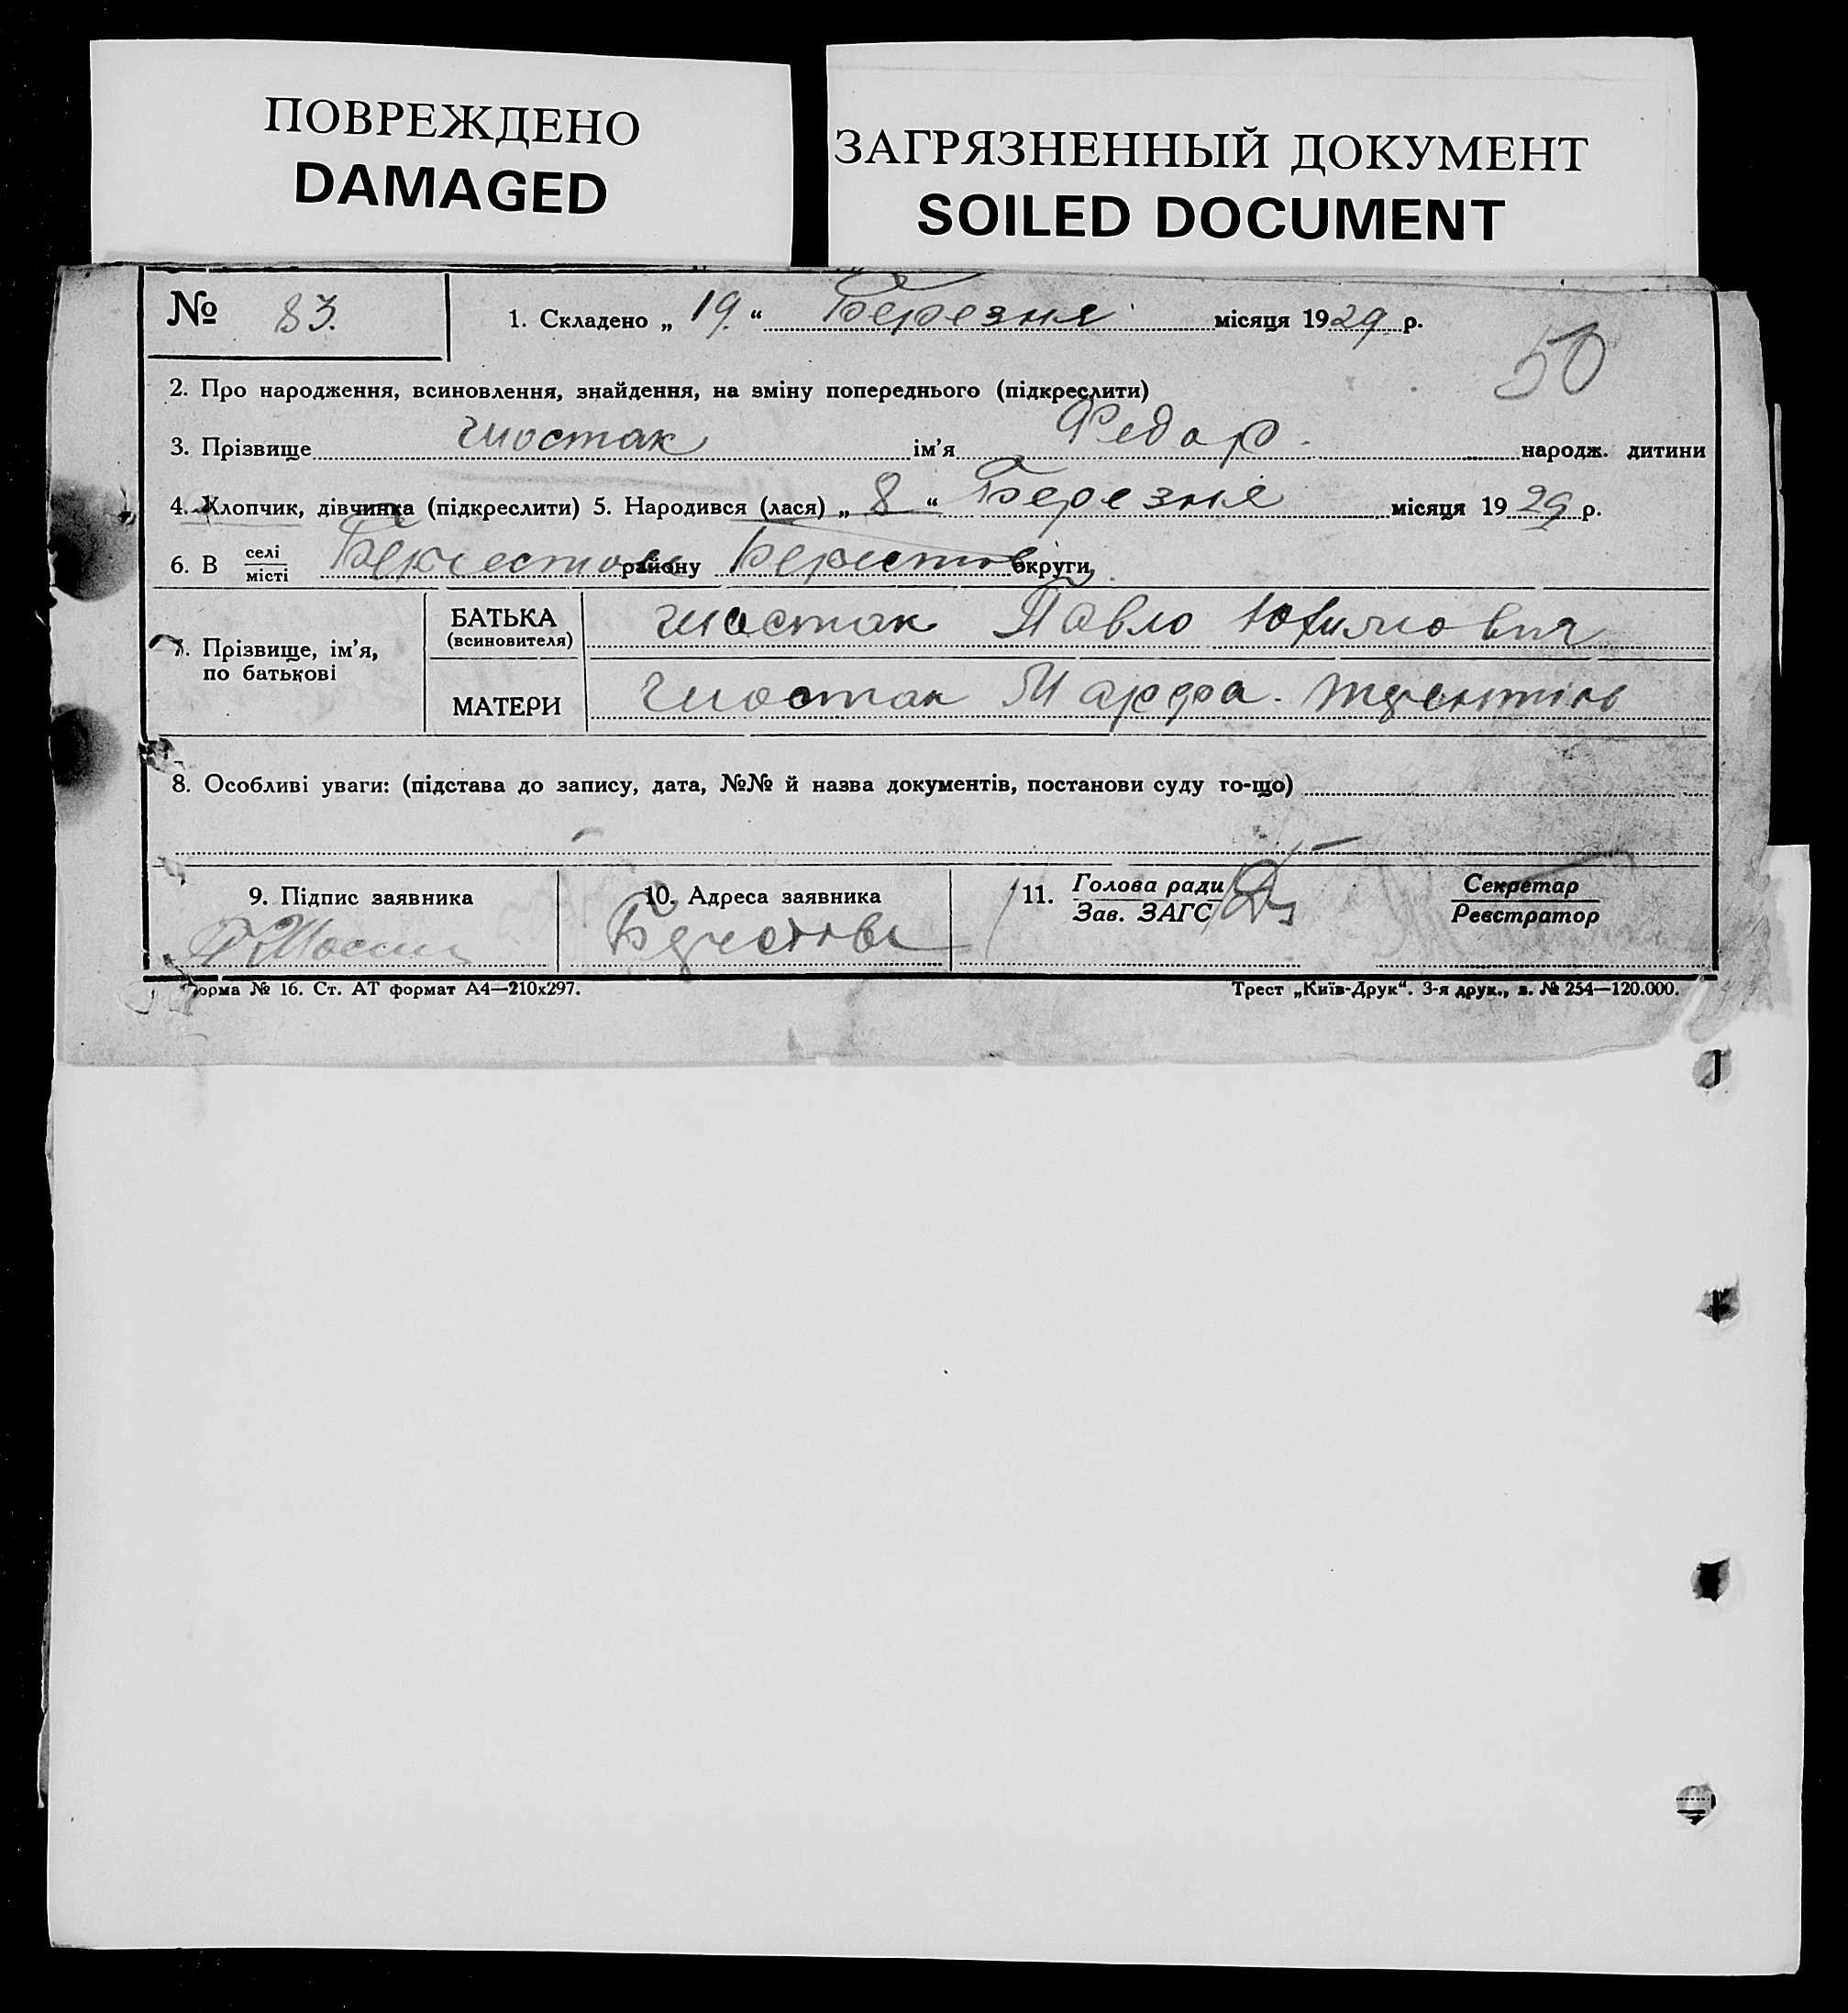 ПОВРЕЖДЕНО
DAMAGED
ЗАГРЯЗНЕННЫЙ ДОКУМЕНТ
SOILED DOCUMENT
№ 83.
1. Складено „ 19. “ Березня місяця 1929 р.
50
2. Про народження, всиновлення, знайдення, на зміну попереднього (підкреслити)
3. Прізвище Шостак ім’я Федор народж. дитини
4. Хлопчик, дівчинка (підкреслити) 5. Народився (лася) „ 8 “ Березня місяця 1929 р.
6. В селі місті району округи
7. Прізвище, ім’я, по батькові
БАТЬКА (всиновителя) Шостак Павло
МАТЕРИ Шостак Марфа
8. Особливі уваги: (підстава до запису, дата, №№ й назва документів, постанови суду то-що)
9. Підпис заявника
10. Адреса заявника
11. Голова ради Зав. ЗАГС
Секретар Реєстратор
орма № 16. Ст. АТ формат А4—210х297.
Трест „Київ-Друк“. 3-я друк., з. № 254—120.000.